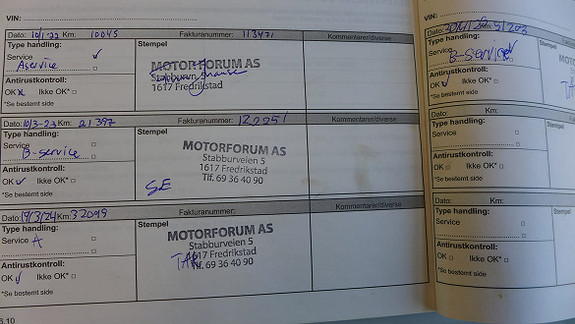 VIN:
Dato: 10/1-22 Km: 10045 Fakturanummer: 113471 Kommentarer/diverse
Type handling: Stempel
Service ✓
Aservice
MOTORFORUM AS
Stabburveien 5
1617 Fredrikstad
Antirustkontroll:
OK x Ikke OK*
*Se bestemt side
Dato: 10/3-23 Km: 21397 Fakturanummer: 122251 Kommentarer/diverse
Type handling: Stempel
Service
B-service
MOTORFORUM AS
Stabburveien 5
1617 Fredrikstad
Tlf. 69 36 40 90
Antirustkontroll:
OK ✓ Ikke OK*
SE
*Se bestemt side
Dato: 19/3/24 Km: 32099 Fakturanummer: Kommentarer/diverse
Type handling: Stempel
Service A
MOTORFORUM AS
Stabburveien 5
1617 Fredrikstad
Tlf. 69 36 40 90
Antirustkontroll:
OK ✓ Ikke OK*
*Se bestemt side
VIN:
Dato:
Type handling:
Service
B-service
Antirustkontroll:
OK ✓ Ikke OK*
*Se bestemt side
Dato: Km:
Type handling:
Service
Antirustkontroll:
OK Ikke OK*
*Se bestemt side
Dato: Km:
Type handling:
Service
Antirustkontroll:
OK Ikke OK*
*Se bestemt side